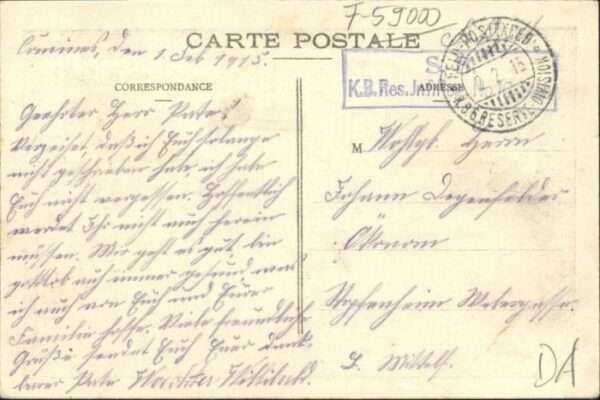 F-59000
Comines, den 1. Feb 1915.
CARTE POSTALE
CORRESPONDANCE
ADRESSE
K.B. Res. Inf.
FELD-POSTEXPED.
K.B. 6. RESERVE DIVISION
Geehrter Herr Pate.
Verzeihet, daß ich Euch solange
nicht geschrieben habe, ich habe
Euch nicht vergessen. Hoffentlich
werdet Ihr nicht auch herein
müssen. Mir geht es gut, bin
gottlob auch immer gesund was
ich auch von Euch und Eurer
Familie hoffe. Viele freundliche
Grüße sendet Euch Euer dank-
barer Pate
M Wohlgb. Herrn
Johann Degenfelder
Ökonom
Stopfenheim
b. Mittelf.
DA